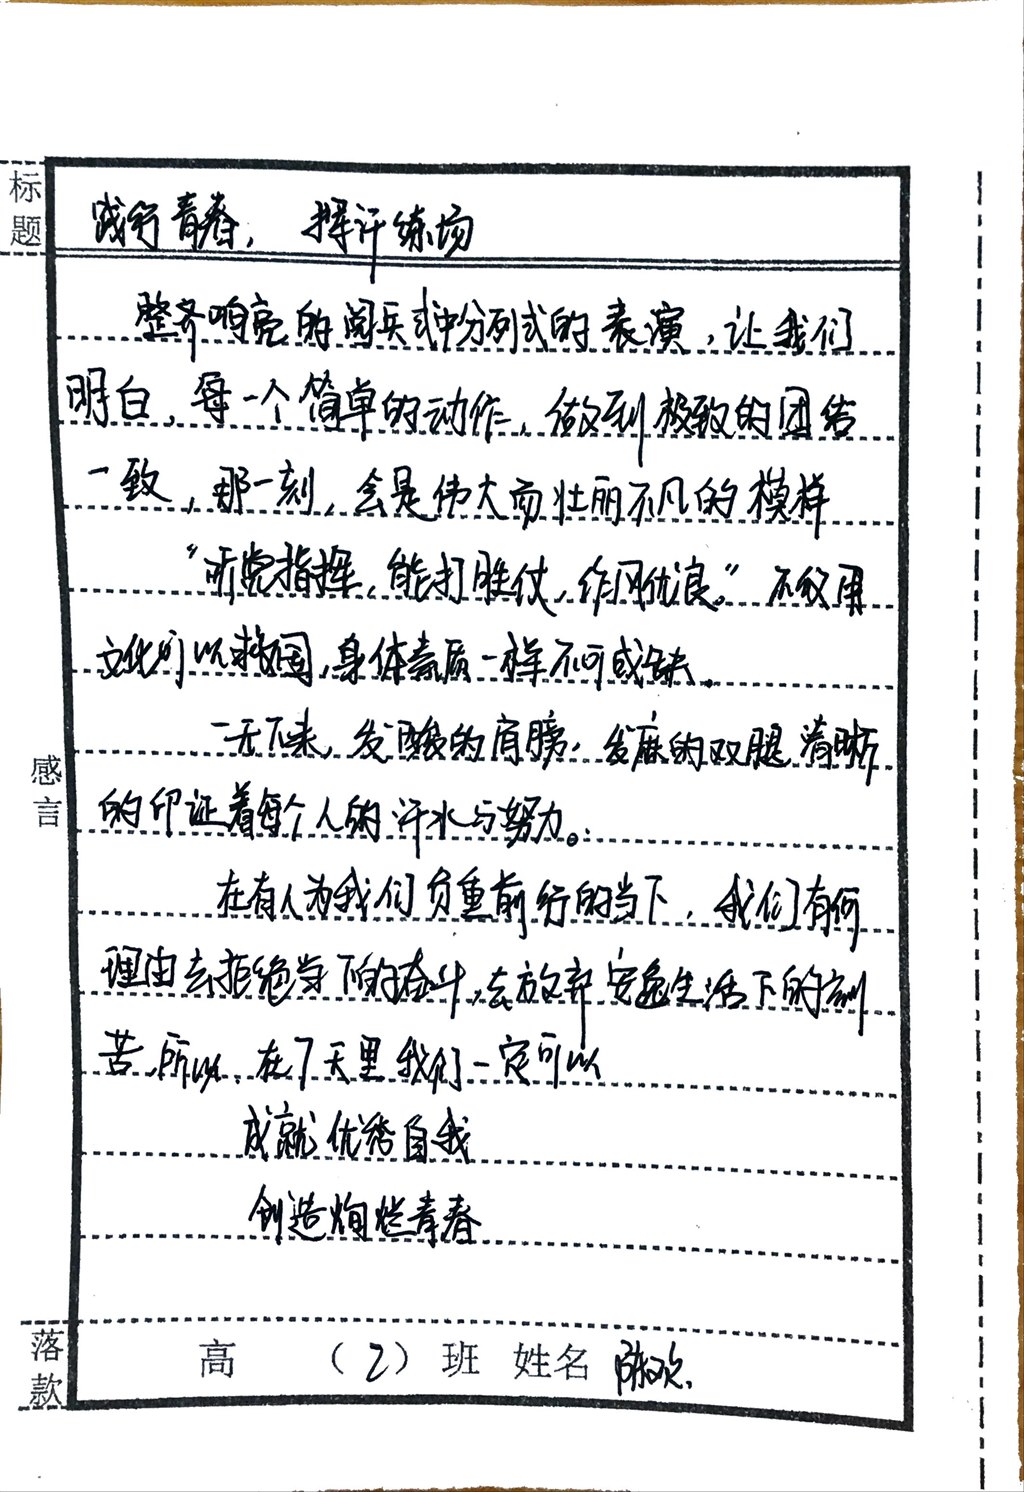 标题
践行青春，挥汗练场
整齐响亮的阅兵式中分列式的表演，让我们
明白，每一个简单的动作，做到极致的团结
一致，那一刻，会是伟大而壮丽不凡的模样
“听党指挥，能打胜仗，作风优良。”不仅用
文化可以救国，身体素质一样不可或缺。
一天下来，发酸的肩膀，发麻的双腿清晰
的印证着每个人的汗水与努力。
感言
在有人为我们负重前行的当下，我们有何
理由去拒绝当下的奋斗，去放弃安逸生活下的刻
苦，所以，在7天里我们一定可以
成就优秀自我
创造绚烂青春
落款
高 （2）班 姓名 陈欢